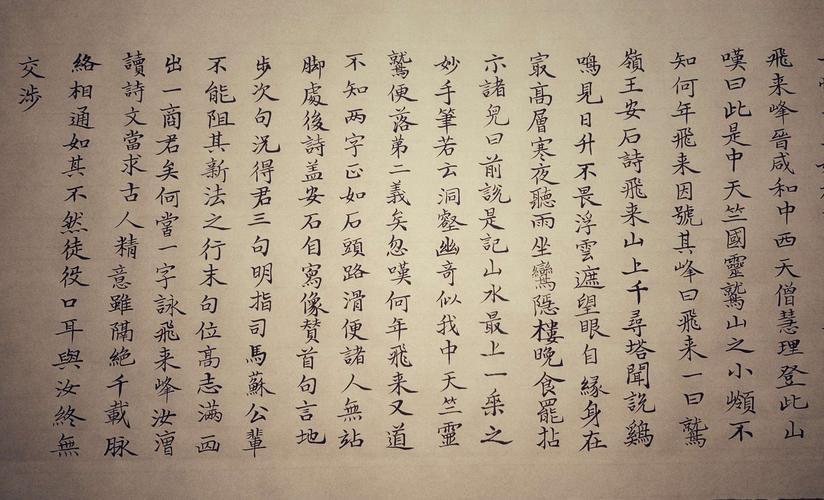 飛来峰晉咸和中西天僧慧理登此山
嘆曰此是中天竺國靈鷲山之小嶺不
知何年飛来因號其峰曰飛来一曰鷲
嶺王安石詩飛来山上千尋塔聞説鷄
鳴見日升不畏浮雲遮望眼自緣身在
冣高層寒夜聽雨坐鸞隱樓晚食罷拈
示諸兒曰前説是記山水最上一乘之
妙手筆若云洞壑幽奇似我中天竺靈
鷲便落第二義矣忽嘆何年飛来又道
不知两字正如石頭路滑便諸人無站
脚處後詩盖安石自寫像賛首句言地
步次句況得君三句明指司馬蘇公輩
不能阻其新法之行末句位高志滿画
出一商君矣何嘗一字詠飛来峰汝漕
讀詩文當求古人精意雖隔絶千載脉
絡相通如其不然徒役口耳與汝終無
交涉